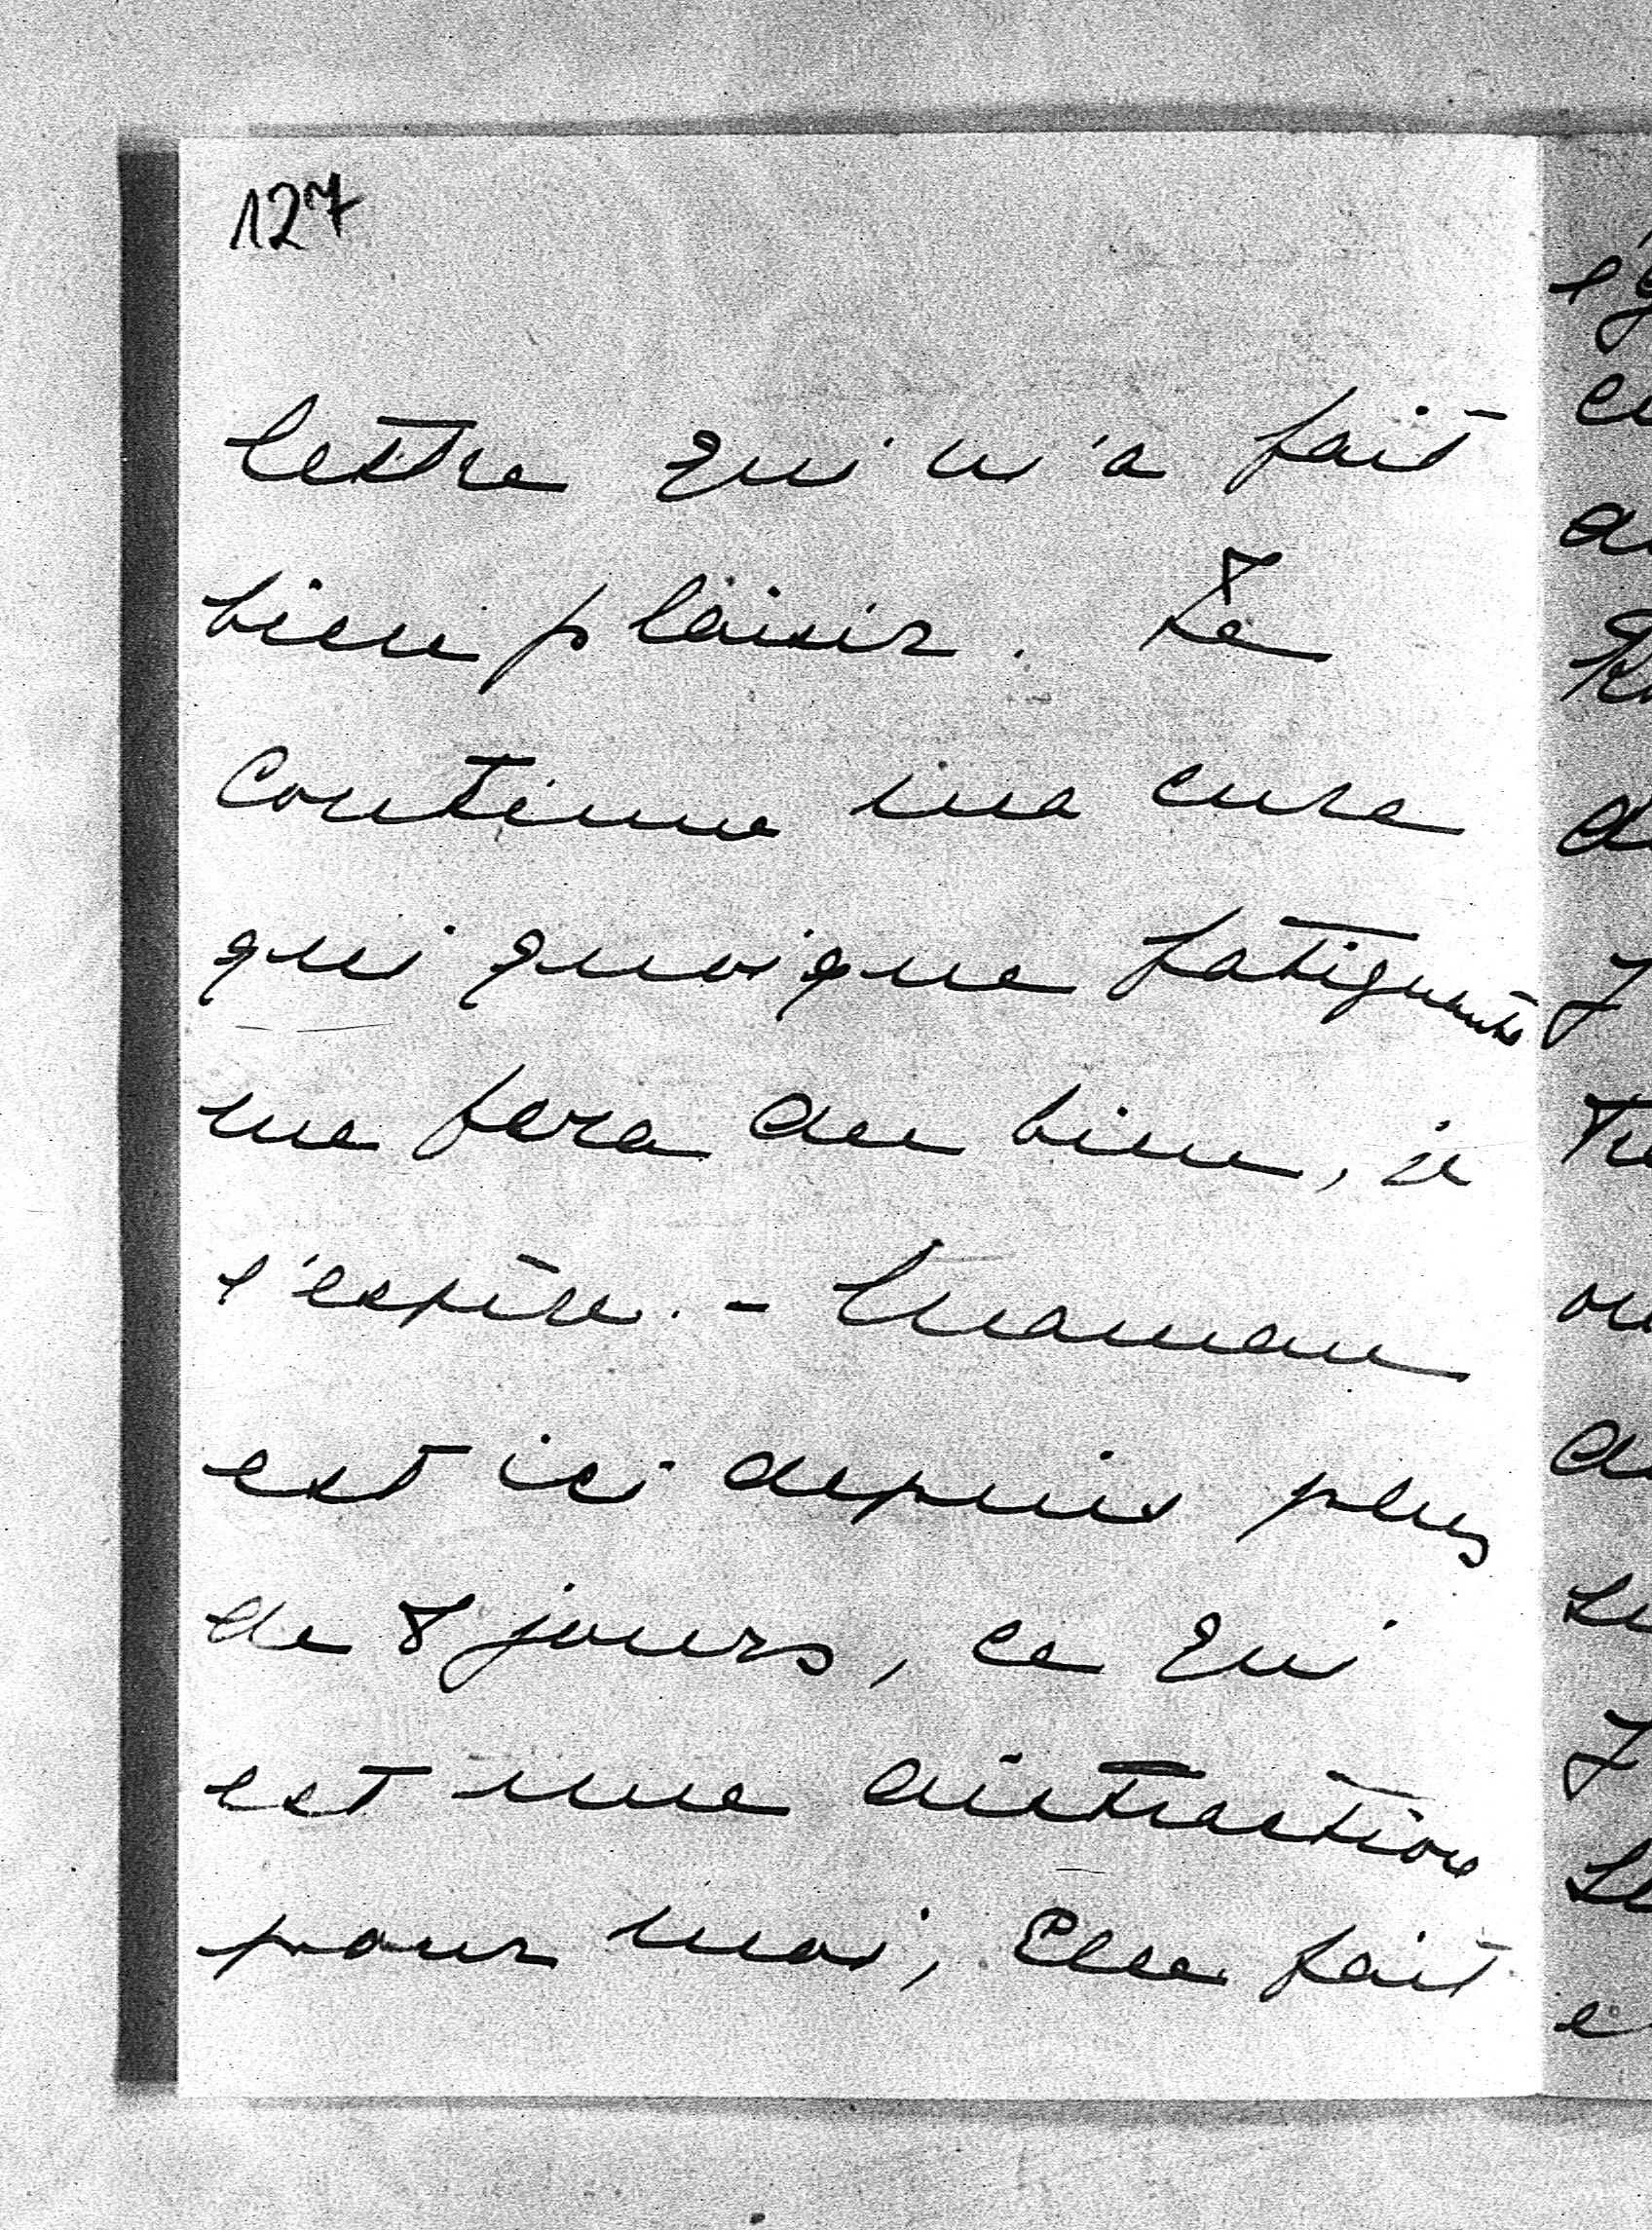 127
lettre qui m'a fait
bien plaisir. Je
continue ma cure
qui quoique fatigante
me fera du bien, je
l'espère. - Maman
est ici depuis plus
de 8 jours, ce qui
est une distraction
pour moi, Elle fait